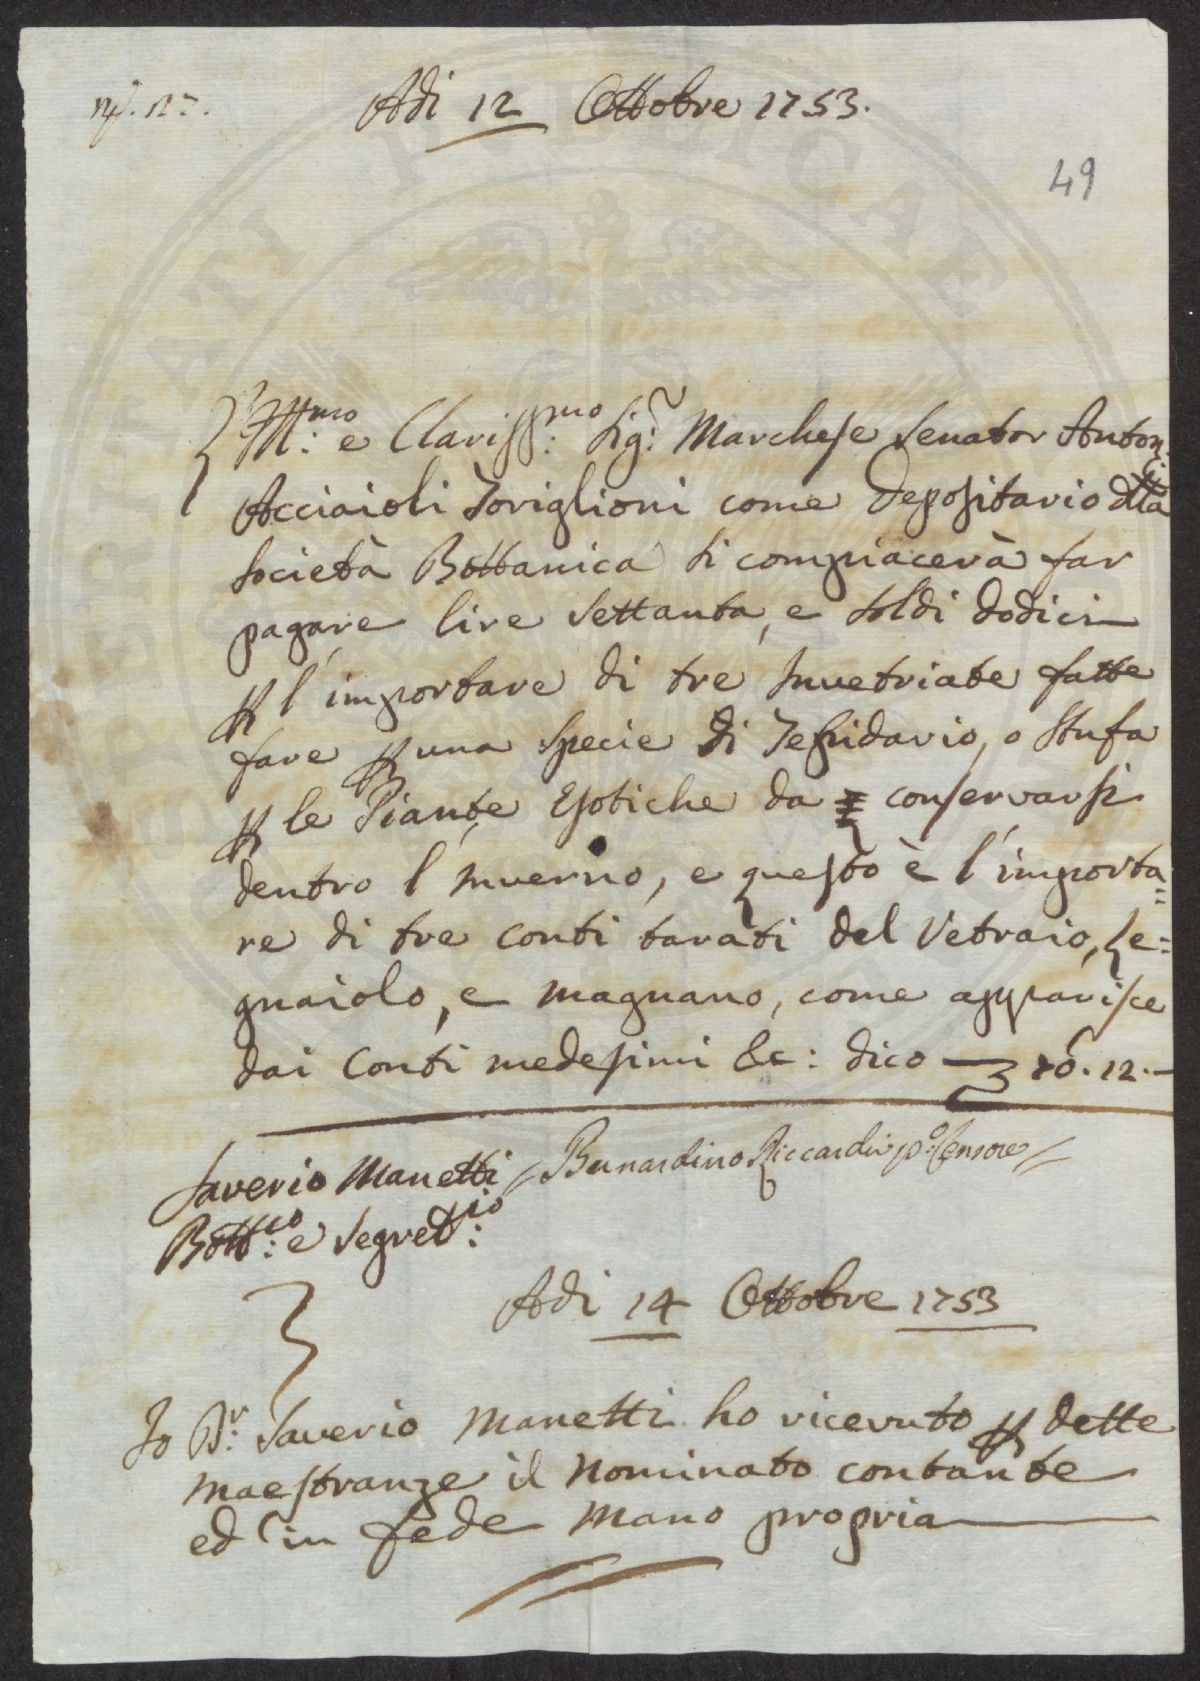 Adi 12 Ottobre 1753.
49
Ill:mo e Clariss:mo Sig:r Marchese Senator Anton:
Acciaioli Toriglioni come Depositario dlla
Società Bottanica si compiacerà far
pagare lire Settanta, e soldi dodici
p l'importare di tre Invetriate fatte
fare p una specie di Tepidario, o Stufa
p le Piante Esotiche da conservarsi
dentro l'Inverno, e questo è l'importa=
re di tre conti tarati del Vetraio, Le=
gnaiolo, e magnano, come apparisce
dai Conti medesimi &c: dico — 70. 12. —
Saverio Manetti / Bernardino Riccardi p:o Censore /
Bott:co e Segret:rio
Adi 14 Ottobre 1753
Io D:r Saverio Manetti ho ricevuto p dette
maestranze il nominato contante
ed in fede mano propria